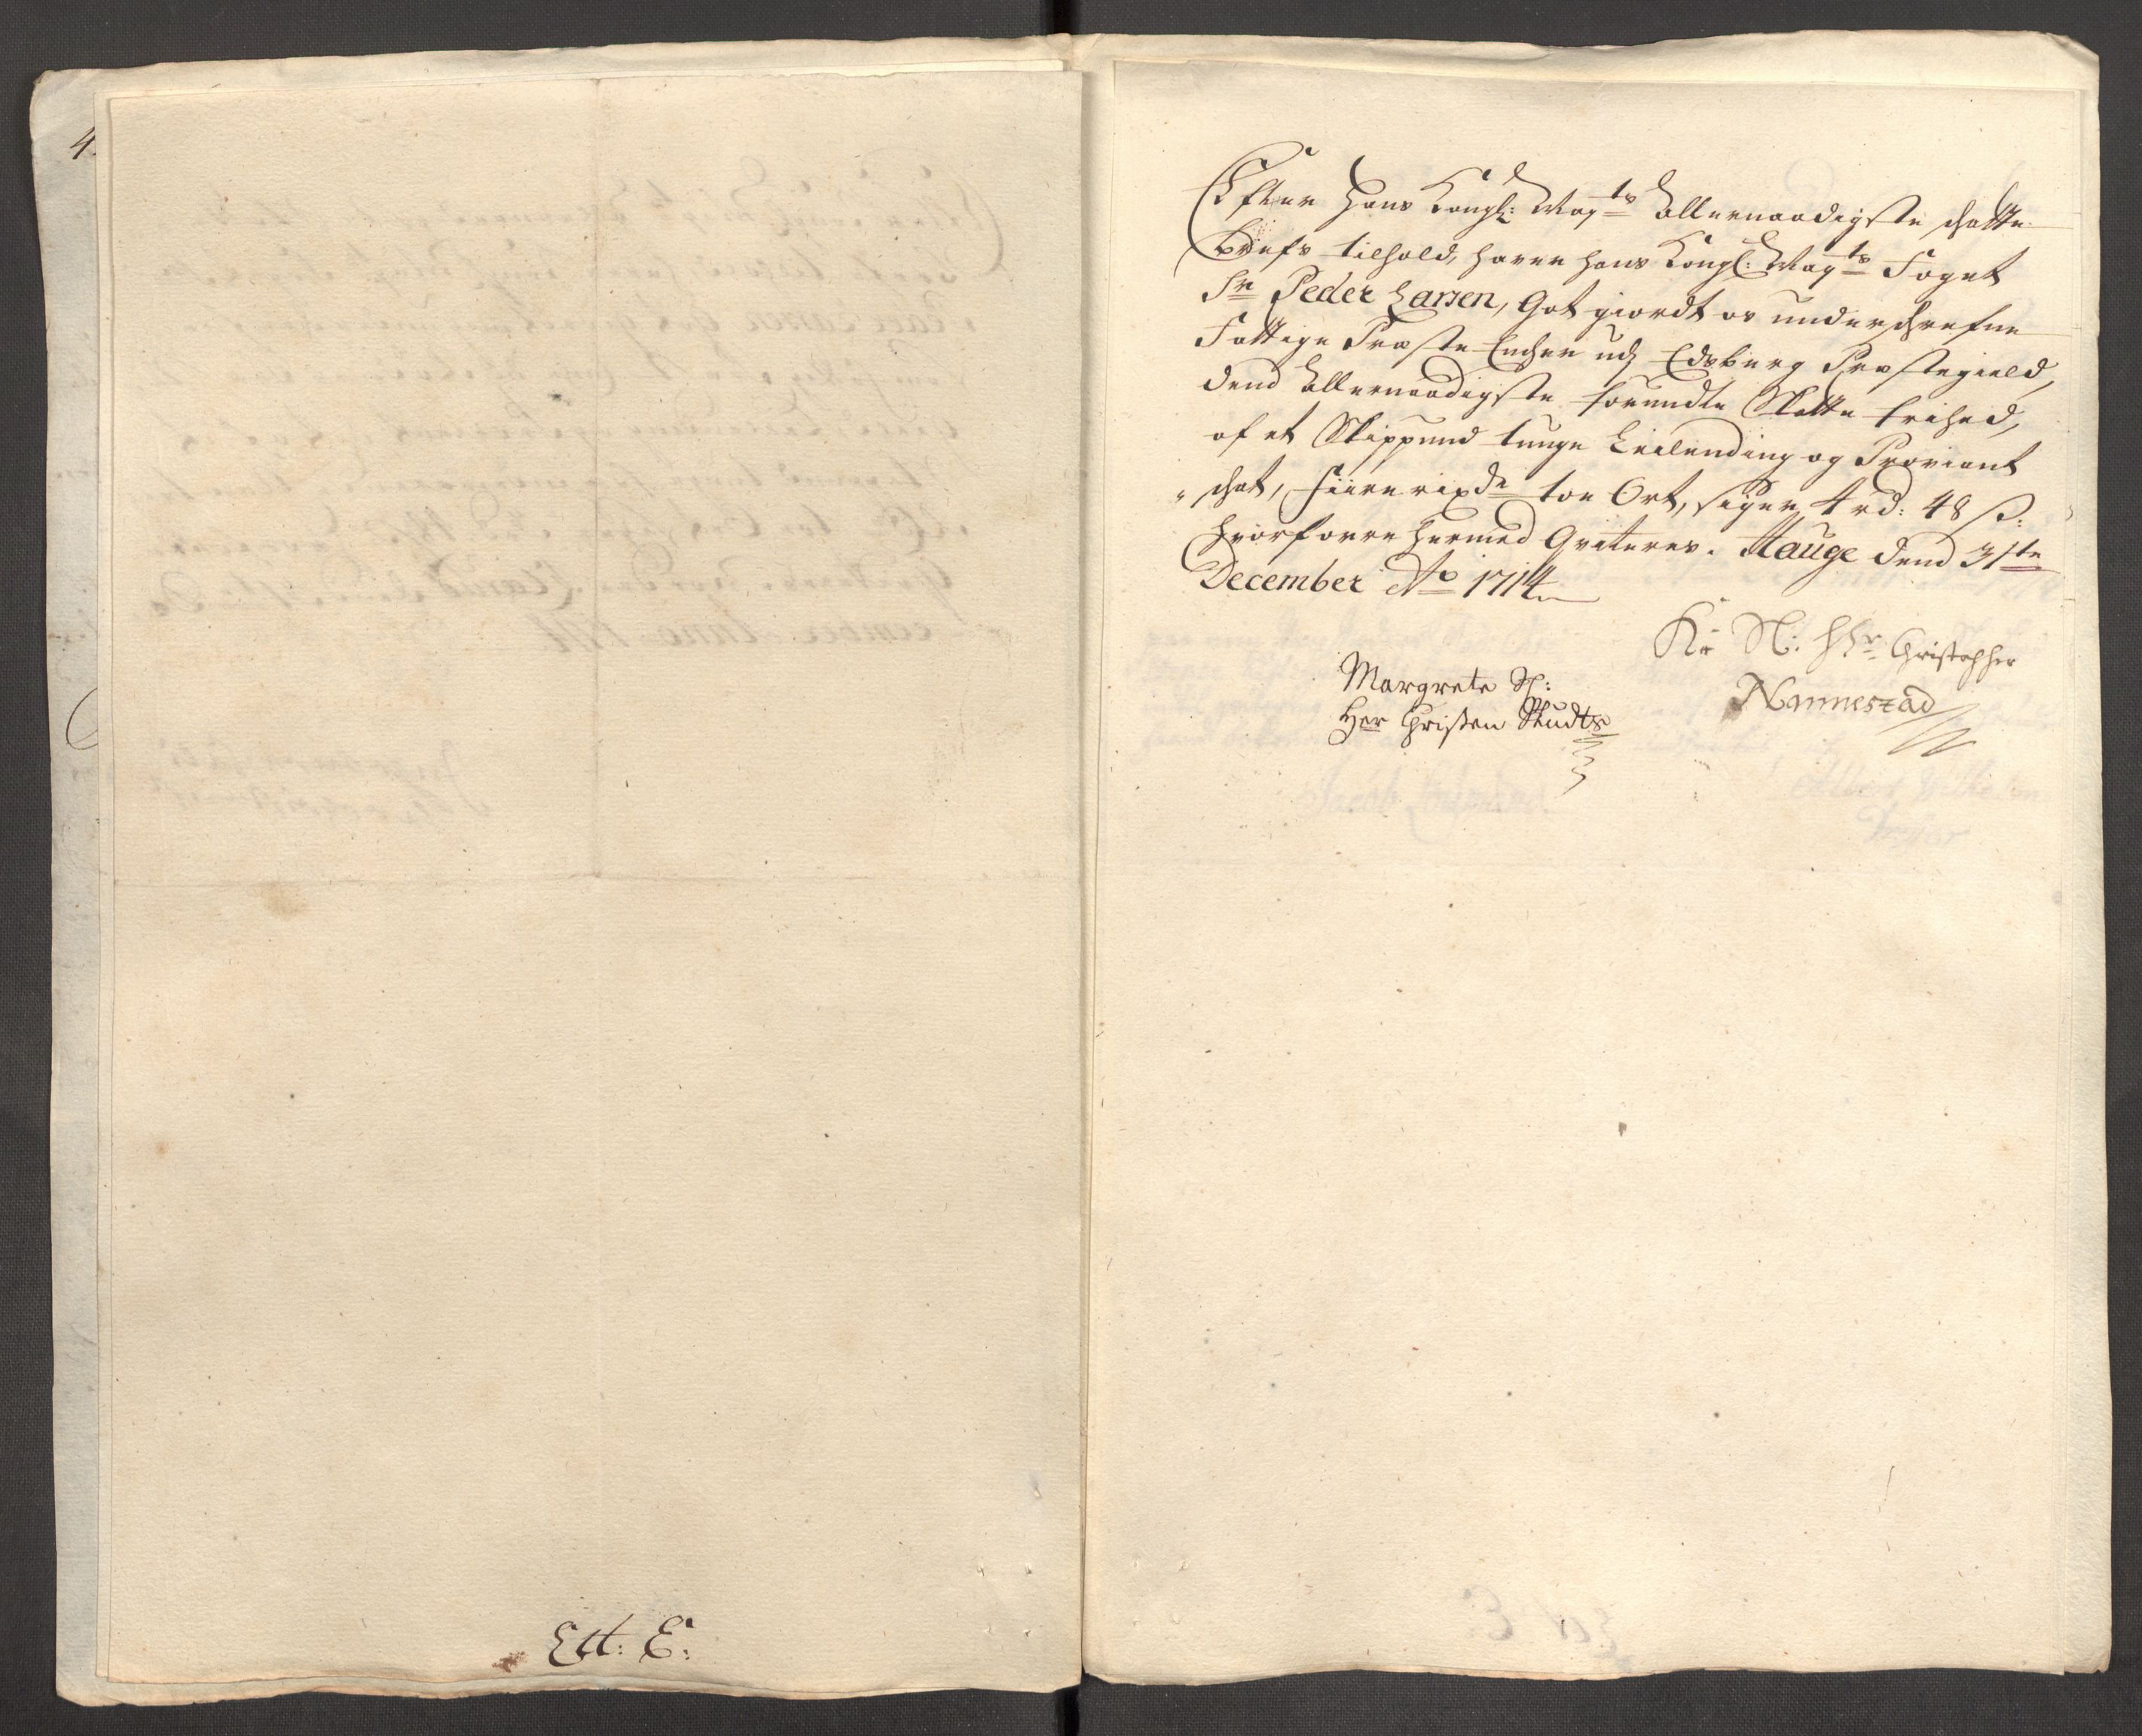 4.
Litt: E:
Efter Hans Kongl: May:ts allernaadigste schatte
brefs tilhold, haver hans Kongl: May:ts Foget
Sr Peder Larsen, Got giordt os underschrefne
Fattige Præste Encher udj Edsberg Præstegield,
dend allernaadigste forundte Skatte frihed,
af et Skippund tunge Leilending og Proviant
schat, fiire rixdr toe Ort, siger 4 rd: 48 s:
hvorforre hermed Qviteres. Hauge dend 31te
December Ao 1714
K: Sl: Hr Christopher
Nannestad
Margrete Sl:
Her Christen Studts